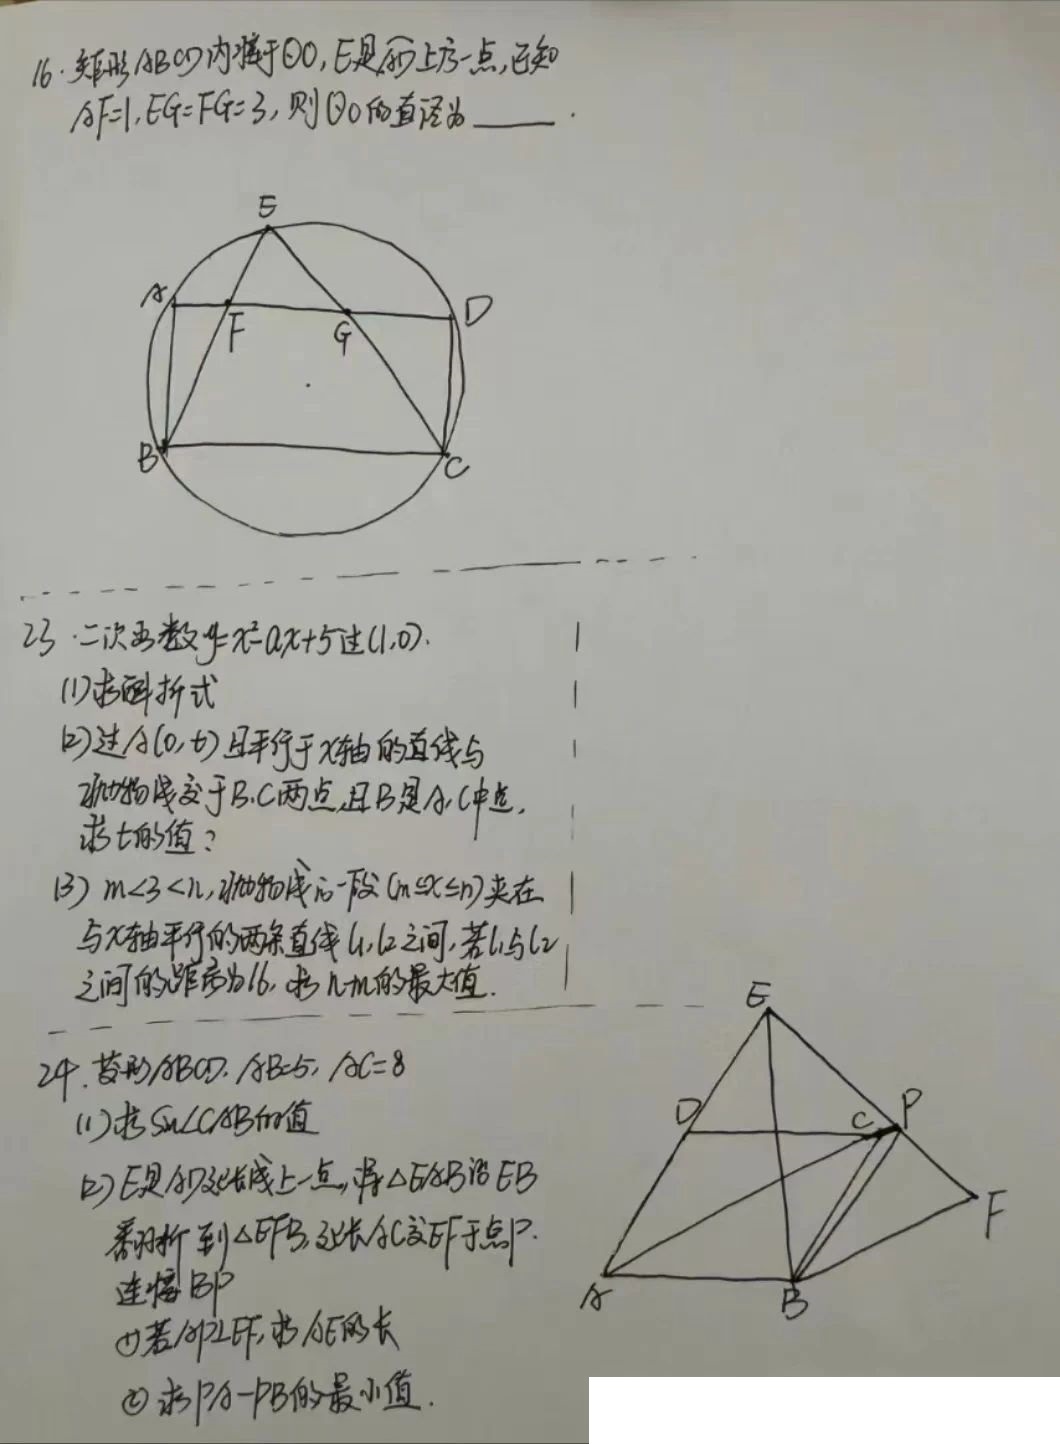 16. 矩形ABCD内接于⊙O, E是AD上方一点, 已知
AF=1, EG=FG=3, 则⊙O的直径为____.
E
A
F
G
D
B
C
23. 二次函数y=x²-ax+5过(1,0).
(1)求解析式
(2)过A(0,t)且平行于x轴的直线与
抛物线交于B、C两点,且B是AC中点,
求t的值?
(3) m<3<n, 抛物线的一段(m≤x≤n)夹在
与x轴平行的两条直线l₁, l₂之间, 若l₁与l₂
之间的距离为16, 求n-m的最大值.
24. 菱形ABCD. AB=5, AC=8
(1)求Sin∠CAB的值
(2)E是AD延长线上一点, 将△EAB沿EB
翻折到△EFB, 延长AC交EF于点P.
连接BP
①若AP⊥EF, 求AE的长
②求PA-PB的最小值.
E
D
C
P
F
A
B